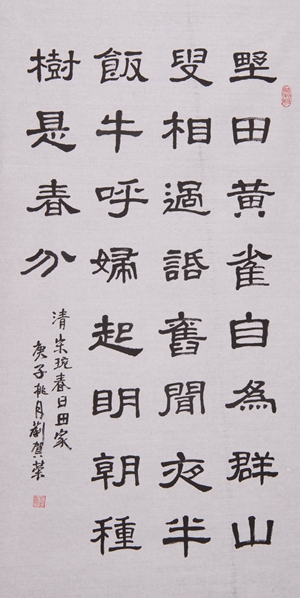 野田黄雀自為群山
叟相過話舊聞夜半
飯牛呼婦起明朝種
樹是春分
清宋琬春日田家
庚子桃月劉賀榮